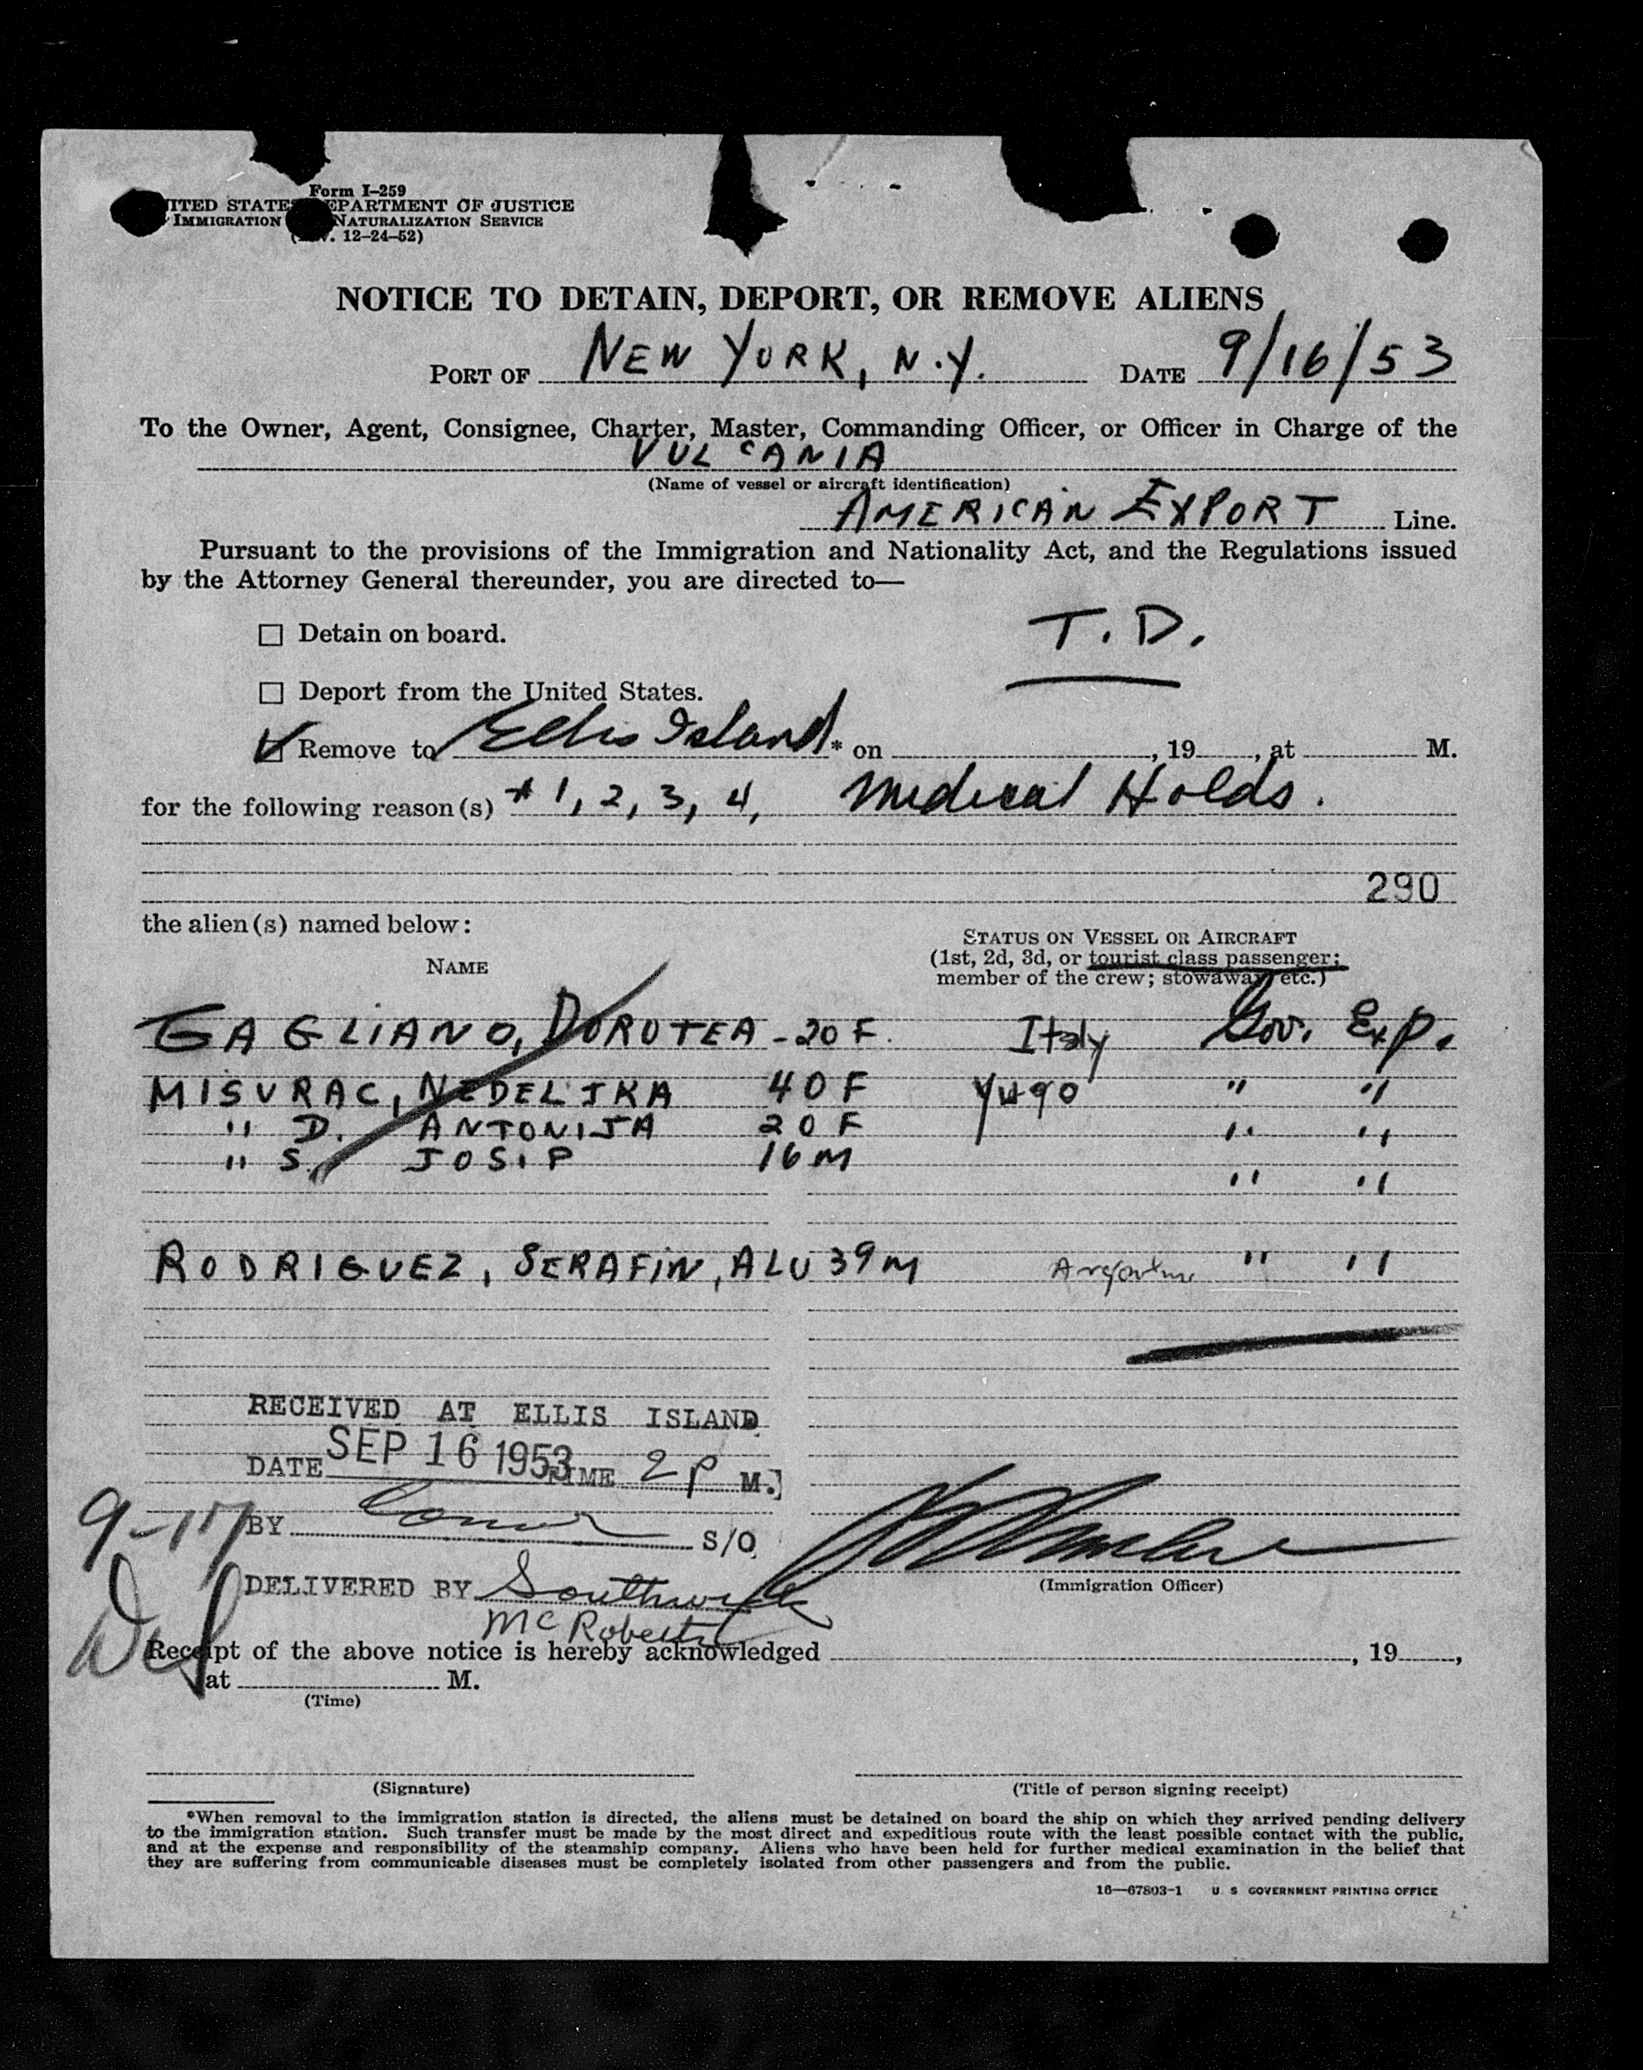 Form I-259
UNITED STATES DEPARTMENT OF JUSTICE
IMMIGRATION NATURALIZATION SERVICE
12-24-52)
NOTICE TO DETAIN, DEPORT, OR REMOVE ALIENS
PORT OF NEW YORK, N.Y. DATE 9/16/53
To the Owner, Agent, Consignee, Charter, Master, Commanding Officer, or Officer in Charge of the
VULCANIA
(Name of vessel or aircraft identification)
AMERICAN EXPORT Line.
Pursuant to the provisions of the Immigration and Nationality Act, and the Regulations issued
by the Attorney General thereunder, you are directed to—
☐ Detain on board. T.D.
☐ Deport from the United States.
☑ Remove to Ellis Island * on , 19 , at M.
for the following reason(s) # 1, 2, 3, 4, Medical Holds.
290
the alien(s) named below:
STATUS ON VESSEL OR AIRCRAFT
NAME (1st, 2d, 3d, or tourist class passenger;
member of the crew; stowaway, etc.)
GAGLIANO, DOROTEA - 20 F. Italy Gov. Exp.
MISURAC, NEDELJKA 40 F Yugo " "
" D. ANTONIJA 20 F " "
" S. JOSIP 16 M " "
RODRIGUEZ, SERAFIN, ALU 39 M " "
RECEIVED AT ELLIS ISLAND
DATE SEP 16 1953 TIME 2 P M.
9-17 BY S/O
(Immigration Officer)
DELIVERED BY Southwick
McRoberts
Receipt of the above notice is hereby acknowledged , 19 ,
at M.
(Time)
(Signature) (Title of person signing receipt)
*When removal to the immigration station is directed, the aliens must be detained on board the ship on which they arrived pending delivery
to the immigration station. Such transfer must be made by the most direct and expeditious route with the least possible contact with the public,
and at the expense and responsibility of the steamship company. Aliens who have been held for further medical examination in the belief that
they are suffering from communicable diseases must be completely isolated from other passengers and from the public.
16—67803-1 U S GOVERNMENT PRINTING OFFICE